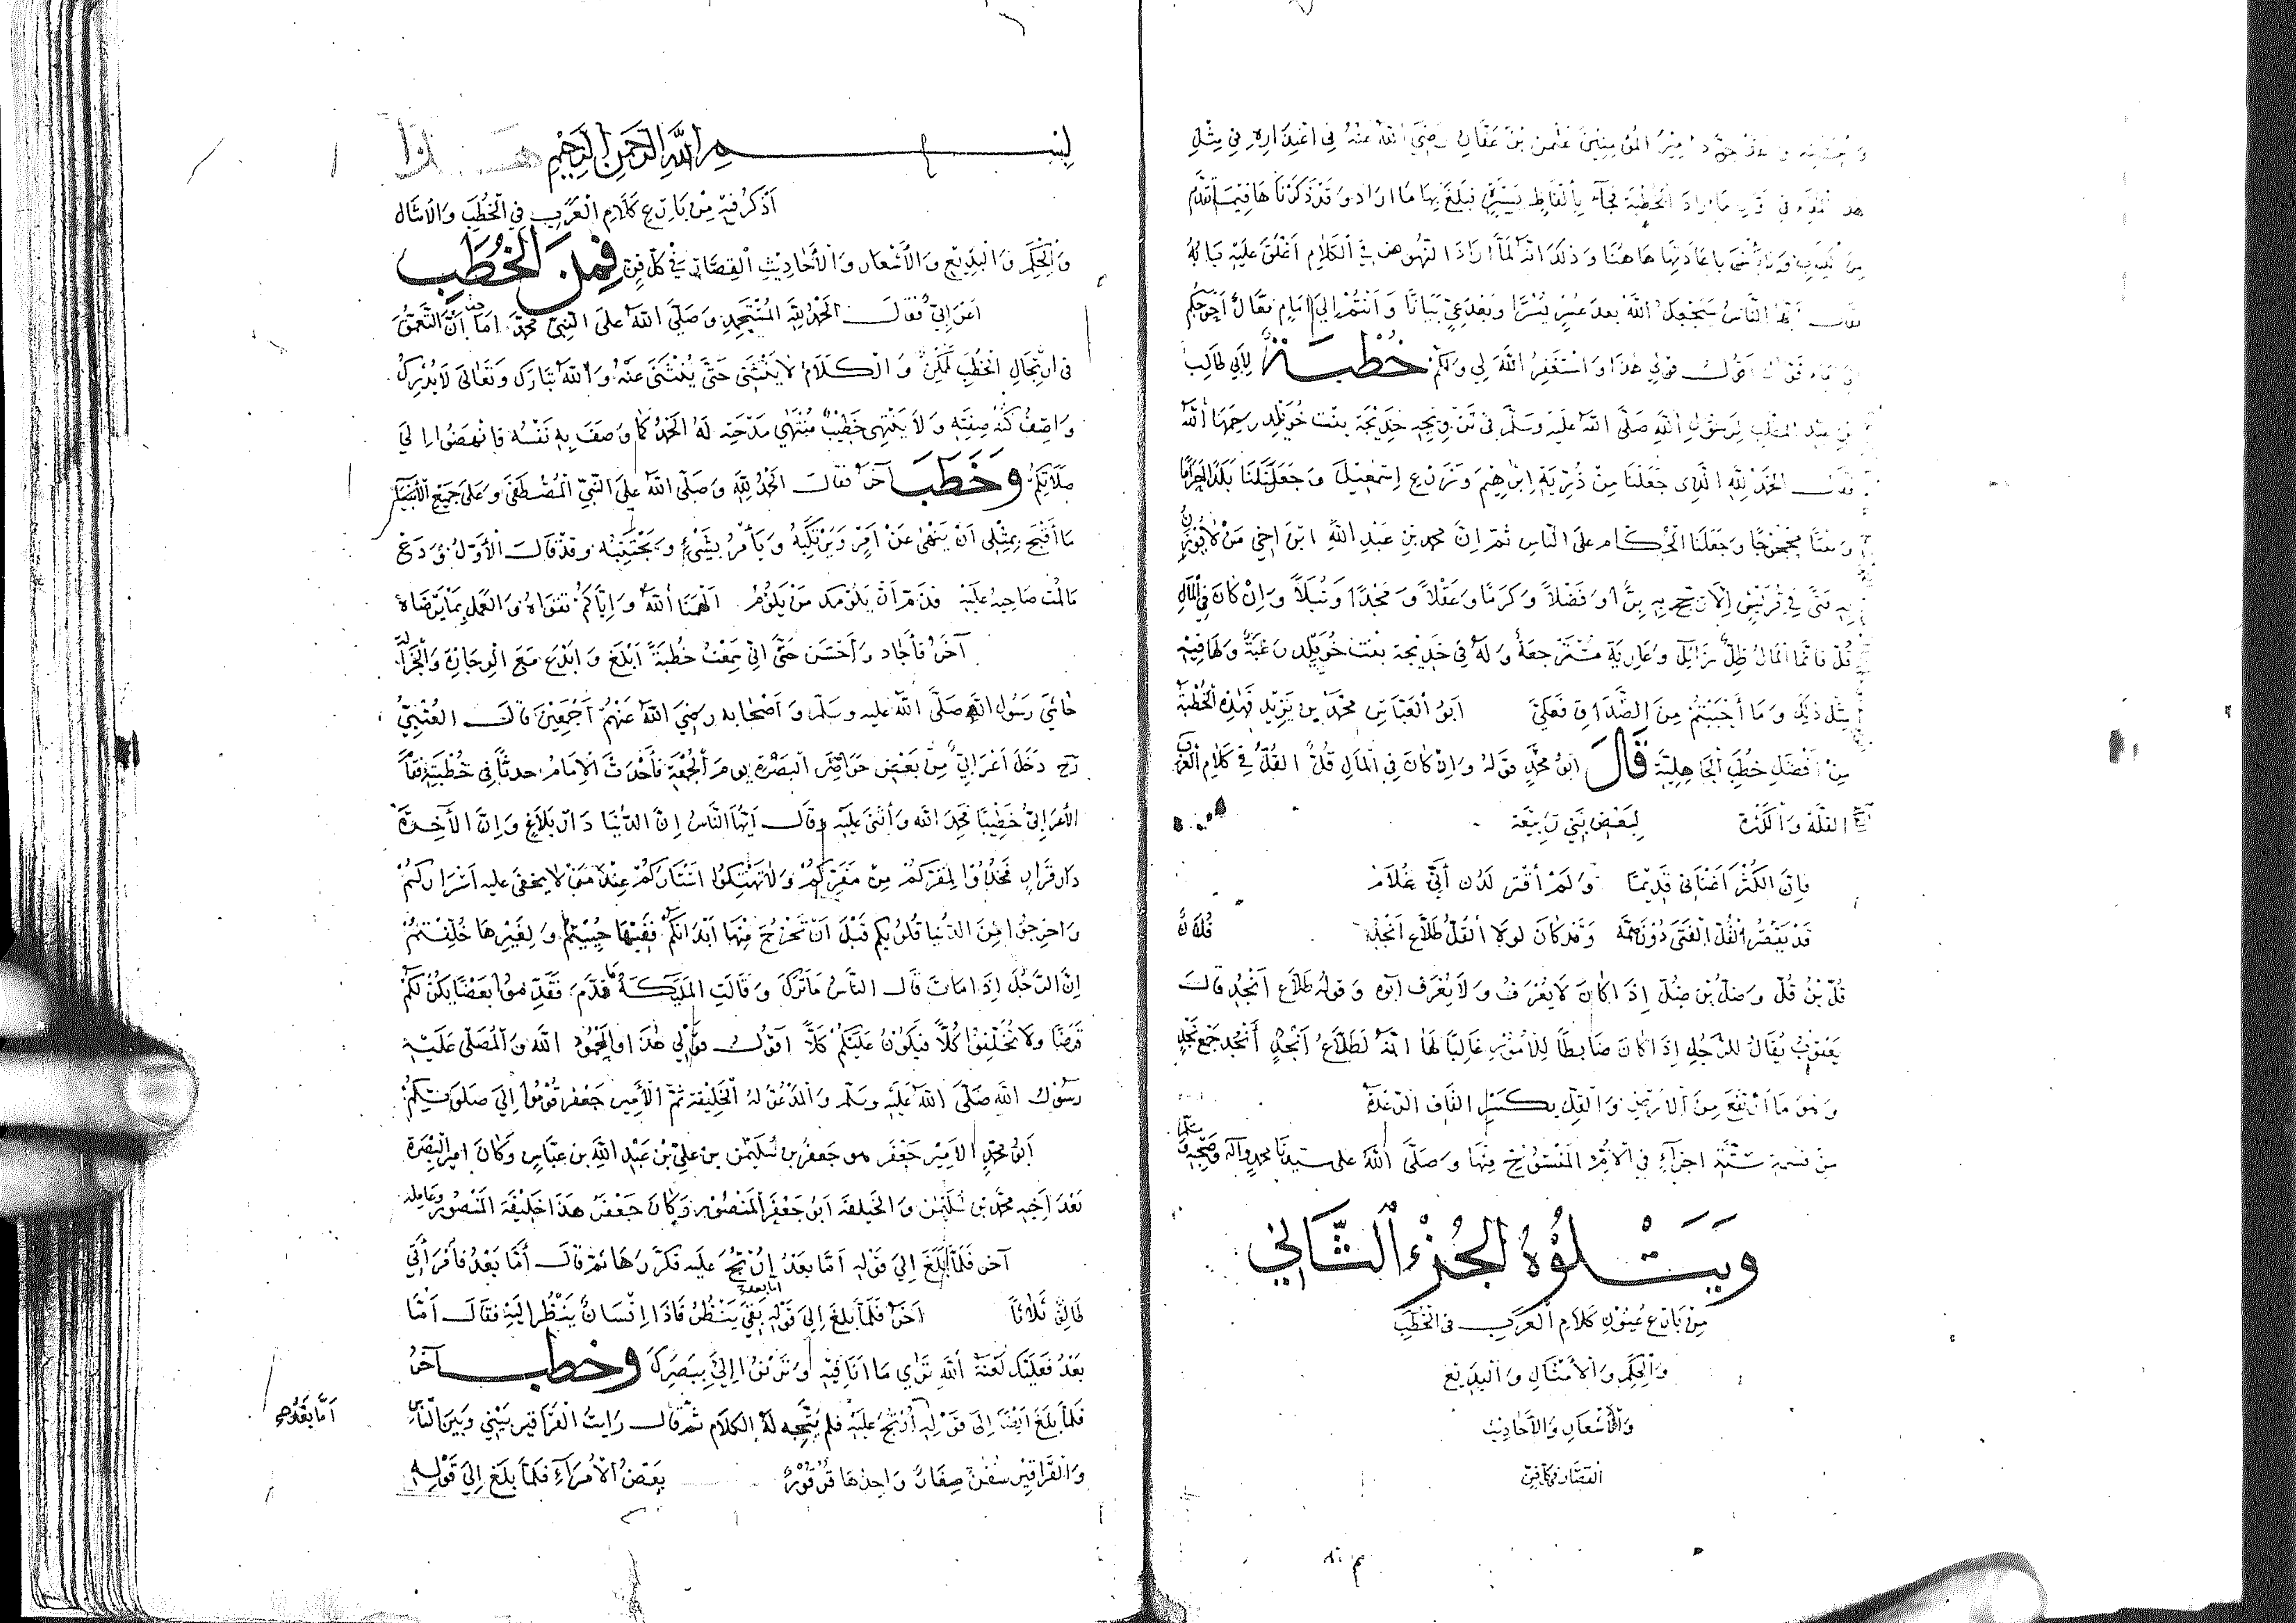 أمير المؤمنين عثمن بن عفان رضي الله عنه في اعتذاره في مثل
الخطبة فجآء بألفاظ يسيرة فبلغ بها ما اراد وقد ذكرناها فيما تقدم
باعادتها هاهنا وذلك انه لمّا اراد النهوض في الكلام اغلق عليه بابه
الناس سيجعل الله بعد عسر يسرًا وبعد عيّ بيانًا وانتم الى امام فعّال أحوجكم
اقول قولي هذا واستغفر الله لي ولكم خطبة لأبي طالب
بن عبد المطلب لرسول الله صلى الله عليه وسلم في تزويجه خديجة بنت خويلد رحمها الله
الحمد لله الذي جعلنا من ذرية ابرهيم وزرع إسمعيل وجعل لنا بلدًا حرامًا
وبيتًا محجوجًا وجعلنا الحكام على الناس ثم ان محمد بن عبد الله ابن اخي من لا يوزن
به فتى في قريش الا رجح به برًّا وفضلًا وكرمًا وعقلًا ومجدًا ونبلًا وإن كان في المال
قل فانما المال ظل زائل وعارية مسترجعة وله في خديجة بنت خويلد رغبة ولها فيه
مثل ذلك وما أحببتم من الصداق فعليّ ابو العباس محمد بن يزيد فهذه الخطبة
من افضل خطب الجاهلية قال ابو محمد قوله وان كان في المال قل القل في كلام العرب
القلة والكثرة لبعض بني ربيعة
فان الكثر أغناني قديمًا ولم أقتر لدن أني غلام
قد يقصر القل الفتى دون همه وقد كان لولا القل طلاع انجد فلان
قل بن قل وضل بن ضل إذا كان لا يعرف ولا يعرف ابوه وقوله طلاع انجد قال
يعقوب يقال للرجل إذا كان ضابطًا للأمور غالبًا لها انه لطلاع أنجد أنجد جمع نجد
وهو ما ارتفع من الارض والقل بكسر القاف الرعدة
من قسمة ستة اجزاء في الام المنسوخ منها وصلى الله على سيدنا محمد وآله وصحبه وسلم
ويتلوه الجزء الثاني
من بارع عيون كلام العرب في الخطب
والحكم والأمثال والبديع
والأشعار والأحاديث
القصار في كل فن
بسم الله الرحمن الرحيم هذا
اذكر فيه من بارع كلام العرب في الخطب والامثال
والحكم والبديع والأشعار والأحاديث القصار في كل فن فمن الخطب
اعرابيّ فقال الحمد لله المستحمد وصلى الله على النبي محمد اما بعد ان التعمق
في ارتجال الخطب لممكن والكلام لا ينثني حتى ينثنى عنه والله تبارك وتعالى لا يدرك
واصف كنه صفته ولا ينتهي خطيب منتهى مدحته له الحمد كما وصف به نفسه فانهضوا إلى
صلاتكم وخطب آخر فقال الحمد لله وصلى الله على النبي المصطفى وعلى جميع الأنبياء
ما أقبح بمثلي ان ينهى عن امر ويرتكبه ويأمر بشيء ويجتنبه وقد قال الأول ودع
ما لمت صاحبه عليه فذم أن يلومك من يلوم ألهمنا الله وإياكم تقواه والعمل بما يرضاه
آخر فأجاد وأحسن حتى اني سمعت خطبة ابلغ وابدع مع الوجازة والجزالة
حاشى رسول الله صلى الله عليه وسلم وأصحابه رضي الله عنهم أجمعين قال العتبي
رح دخل أعرابيّ من بعض حواضر البصرة يوم الجمعة فأحدث الامام حدثًا في خطبته فقام
الأعرابي خطيبًا فحمد الله وأثنى عليه وقال ايها الناس ان الدنيا دار بلاغ وان الآخرة
دار قرار فخذوا لمقركم من مفركم ولا تهتكوا استاركم عند من لا يخفى عليه اسراركم
واخرجوا من الدنيا قلوبكم قبل ان تخرج منها ابدانكم ففيها حييتم ولغيرها خلقتم
ان الرجل اذا مات قال الناس ما ترك وقالت المليكة ما قدم فقدموا بعضًا يكن لكم
قرضًا ولا تخلفوا كلًا فيكون عليكم كلًا اقول قولي هذا والمحمود الله والمصلى عليه
رسول الله صلى الله عليه وسلم والمدعو له الخليفة ثم الأمير جعفر قوموا الى صلوتكم
ابو محمد الامير جعفر هو جعفر بن سليمن بن علي بن عبد الله بن عباس وكان امير البصرة
بعد اخيه محمد بن سليمن والخليفة ابو جعفر المنصور وكان جعفر هذا خليفة المنصور وعامله
آخر فلما بلغ الى قوله أما بعد ارتج عليه فكررها ثم قال أما بعد فامرأتي
طالق ثلاثًا آخر فلما بلغ إلى قوله اما بعد بقي ينظر فاذا إنسان ينظر اليه فقال أما
بعد فعليك لعنة الله ترى ما انا فيه وترنو الي ببصرك وخطب آخر
فلما بلغ ايضًا الى قوله أرتج عليه فلم يتجه له الكلام ثم قال رايت القراقير بيني وبين الناس
اما بعد صح
والقراقير سفن صغار واحدها قرقور بعض الأمراء فلما بلغ الى قوله